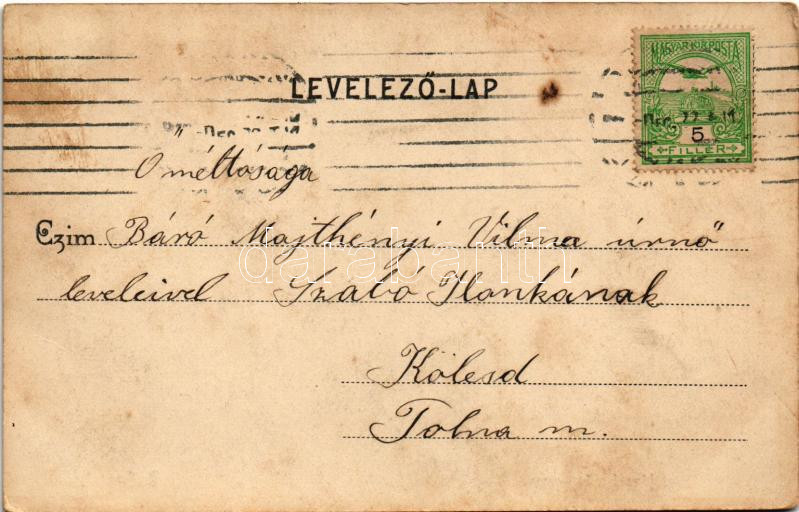 LEVELEZŐ-LAP
MAGYAR KIR. POSTA
5
FILLÉR
Őméltósága
Czim Báró Majthényi Vilma úrnő
leveleivel Szabó Ilonkának
Kölesd
Tolna m.
darabanth